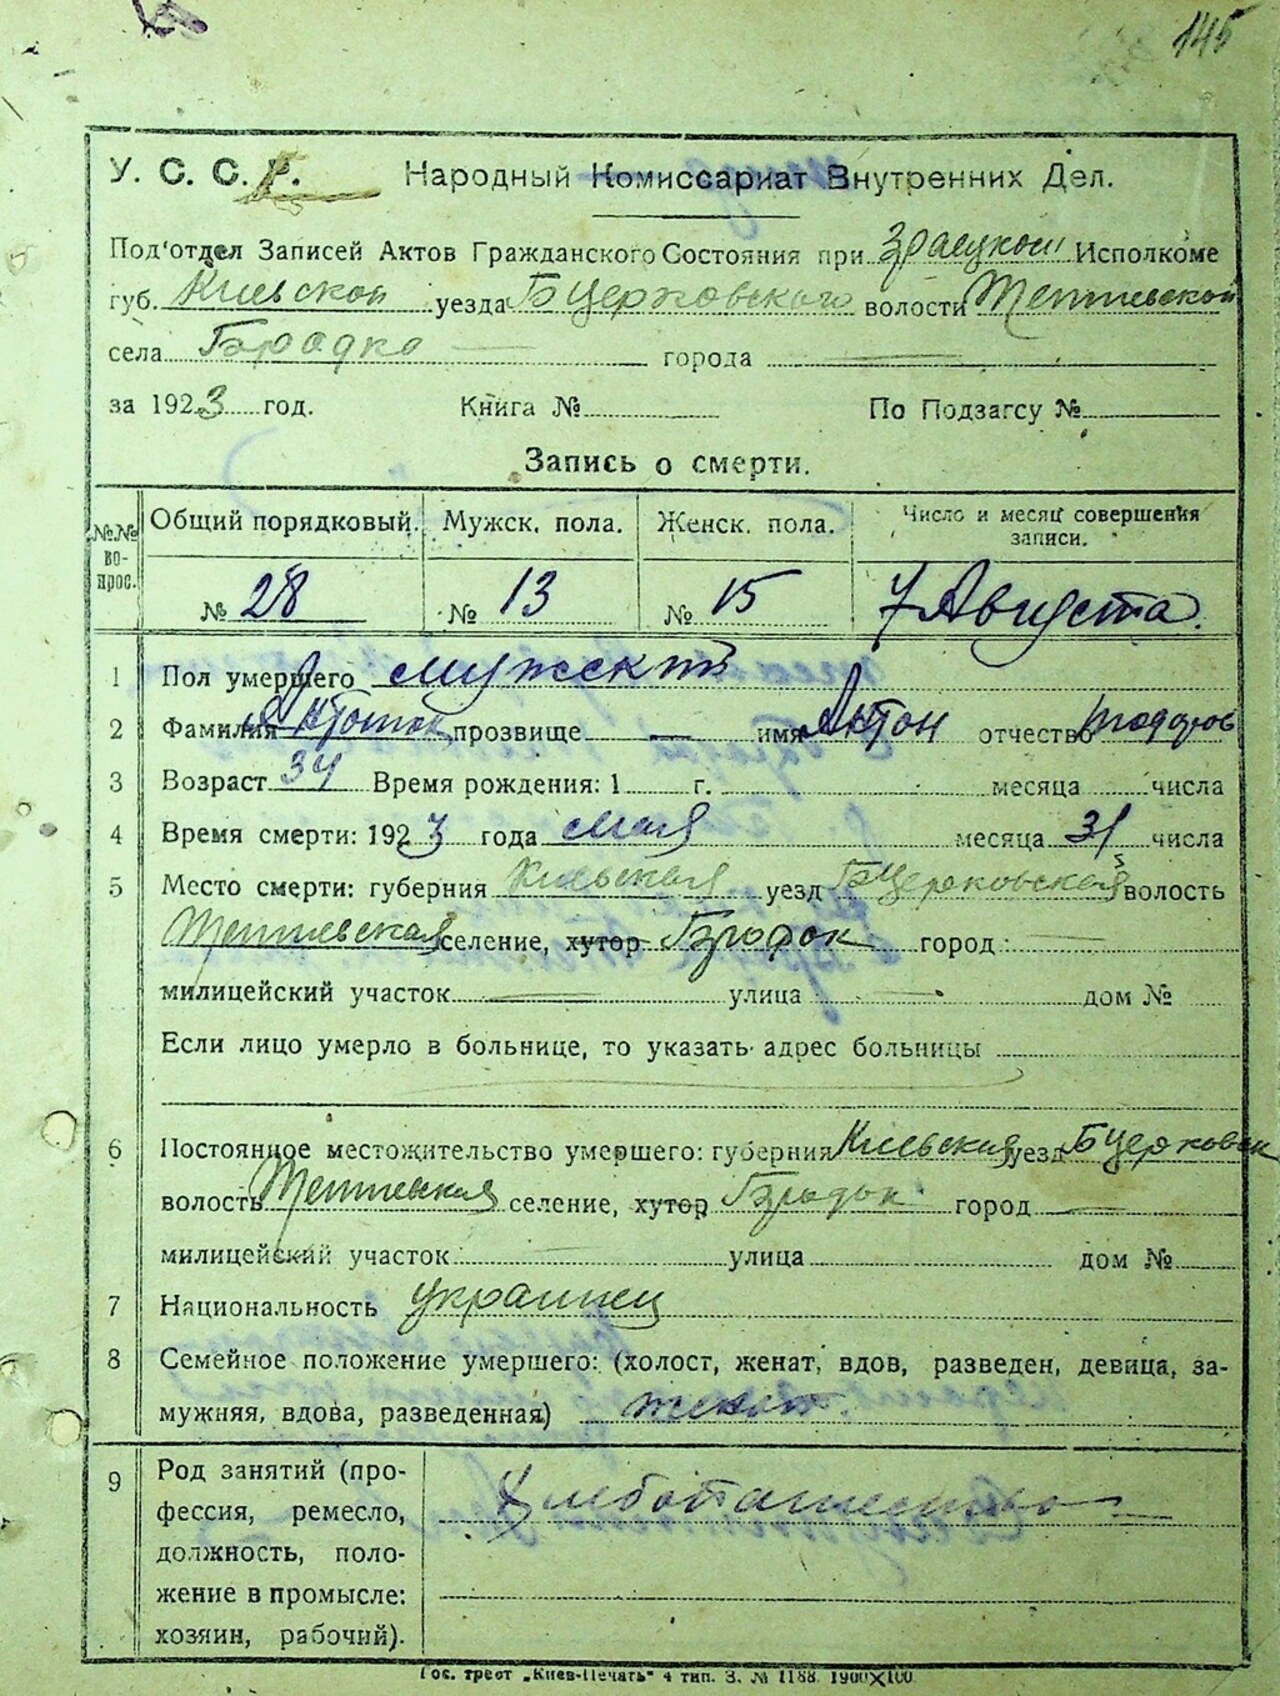 145
У. С. С. Р. Народный Комиссариат Внутренних Дел.
Под'отдел Записей Актов Гражданского Состояния при Исполкоме
губ. Киевской уезда Бцерковского волости Тетиевской
села Городка города
за 1923 год. Книга № По Подзагсу №
Запись о смерти.
№№ вопрос. Общий порядковый. Мужск. пола. Женск. пола. Число и месяц совершения записи.
№ 28 № 13 № 15 7 Августа.
1 Пол умершего мужской
2 Фамилия прозвище — имя Антон отчество Тодоров
3 Возраст 34 Время рождения: 1 г. месяца числа
4 Время смерти: 1923 года мая месяца 31 числа
5 Место смерти: губерния Киевская уезд Бцерковская волость
Тетиевская селение, хутор Городок город: —
милицейский участок — улица — дом №
Если лицо умерло в больнице, то указать адрес больницы
6 Постоянное местожительство умершего: губерния Киевская уезд Бцерковск
волость Тетиевская селение, хутор Городок город —
милицейский участок улица дом №
7 Национальность украинец
8 Семейное положение умершего: (холост, женат, вдов, разведен, девица, за-
мужняя, вдова, разведенная) женат.
9 Род занятий (про-
фессия, ремесло,
должность, поло-
жение в промысле:
хозяин, рабочий).
Хлебопашество
Гос. трест „Киев-Печать" 4 тип. З. № 1188. 1900X100